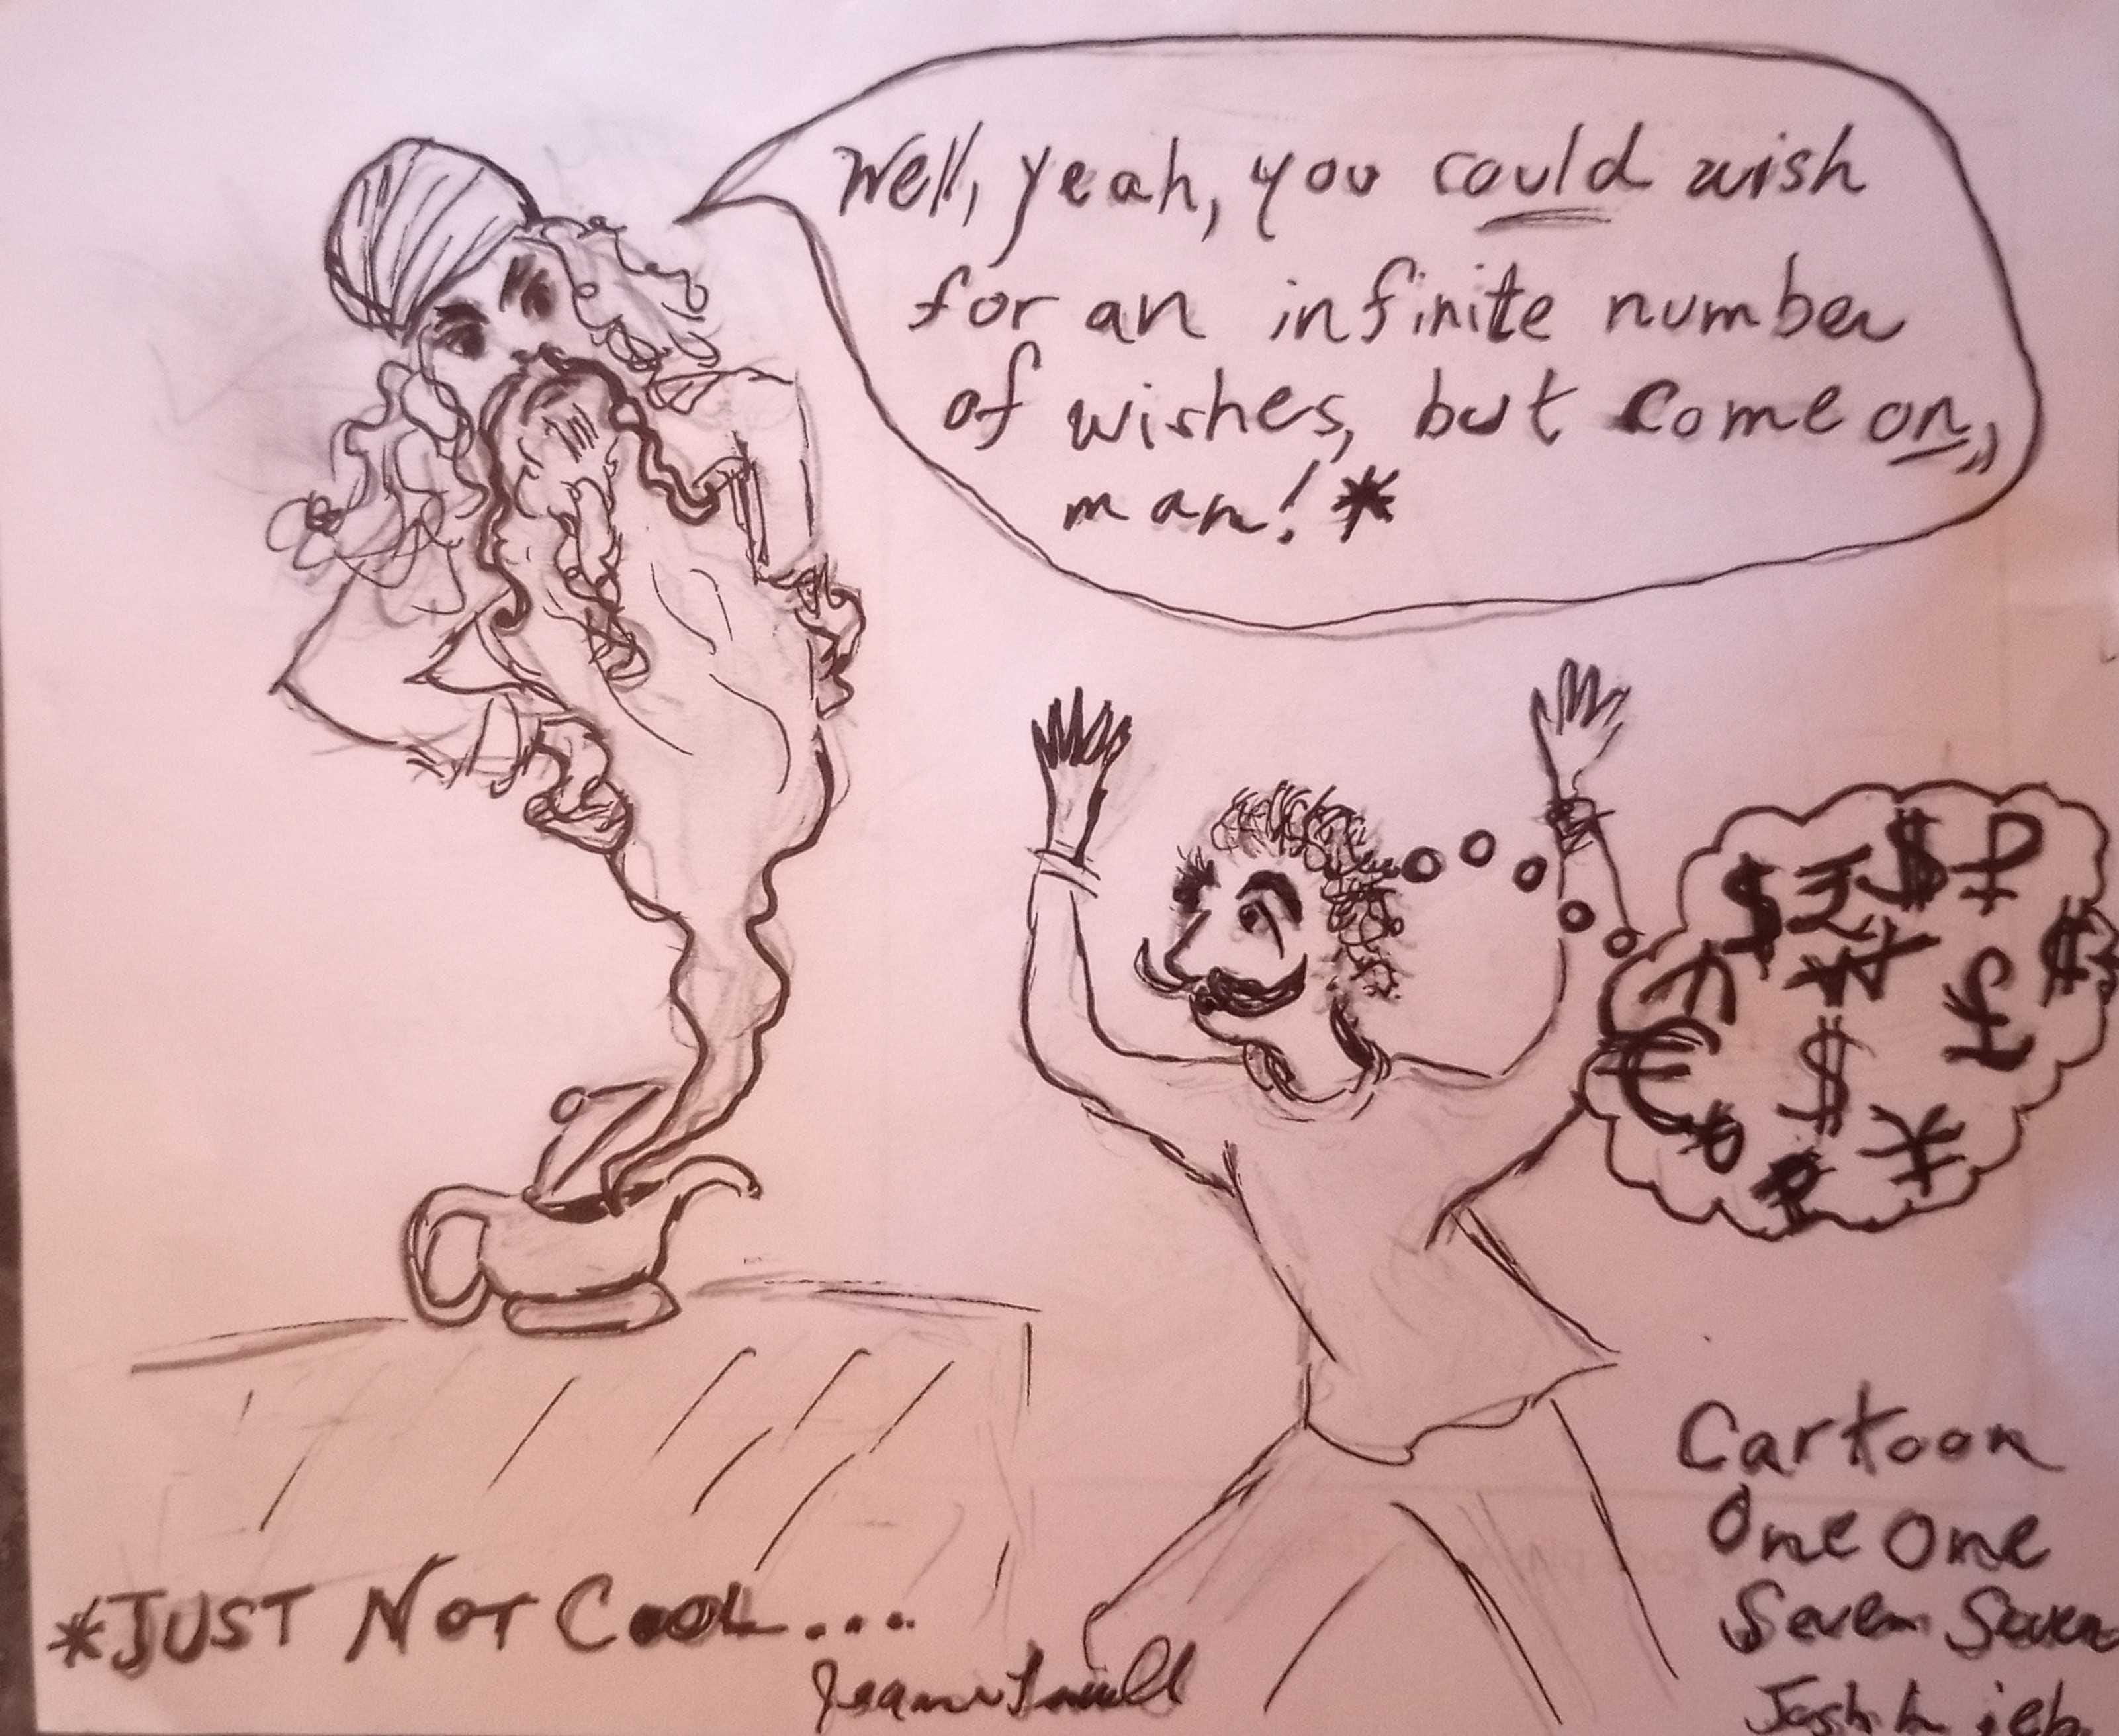 Well, yeah, you could wish
for an infinite number
of wishes, but come on,
man! *
$ ₹ $ £
$
£
€ $
¥
Cartoon
One One
Seven Seven
Josh
*JUST NOT COOL...